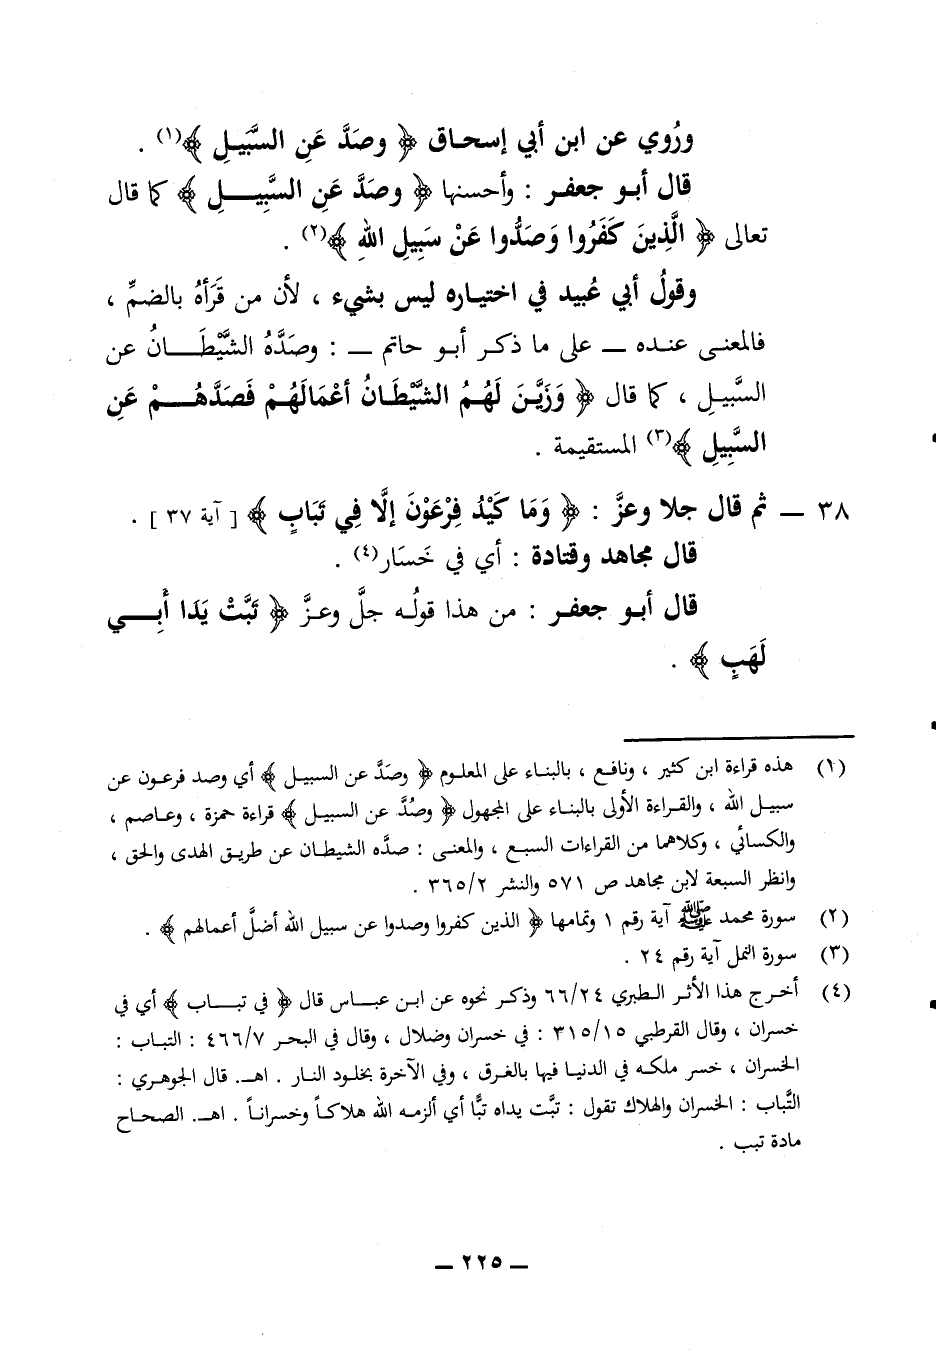 ورُوي عن ابن أبي إسحاق ﴿ وصَدَّ عَنِ السَّبَيلِ ﴾(١) .
قال أبو جعفر : وأحسنها ﴿ وصَدَّ عَنِ السَّبِيلِ ﴾ كما قال
تعالى ﴿ الَّذِينَ كَفَرُوا وَصَدُّوا عَنْ سَبِيلِ اللهِ ﴾(٢) .
وقولُ أبي عُبيد في اختياره ليس بشيء ، لأن من قَرَأهُ بالضمِّ ،
فالمعنى عنده ــ على ما ذكر أبو حاتم ــ : وصَدَّهُ الشَّيْطَانُ عن
السَّبيلِ ، كما قال ﴿ وَزَيَّنَ لَهُمُ الشَّيْطَانُ أعْمَالَهُمْ فَصَدَّهُمْ عَنِ
السَّبِيلِ ﴾(٣) المستقيمة .
٣٨ ــ ثم قال جلا وعزَّ : ﴿ وَمَا كَيْدُ فِرْعَوْنَ إلَّا فِي تَبَابٍ ﴾ [ آية ٣٧ ] .
قال مجاهد وقتادة : أي في خَسَار(٤) .
قال أبو جعفر : من هذا قولُه جلَّ وعزَّ ﴿ تَبَّتْ يَدَا أَبِي
لَهَبٍ ﴾ .
(١) هذه قراءة ابن كثير ، ونافع ، بالبناء على المعلوم ﴿ وصَدَّ عن السبيل ﴾ أي وصد فرعون عن
سبيل الله ، والقراءة الأولى بالبناء على المجهول ﴿ وصُدَّ عن السبيل ﴾ قراءة حمزة ، وعاصم ،
والكسائي ، وكلاهما من القراءات السبع ، والمعنى : صدَّه الشيطان عن طريق الهدى والحق ،
وانظر السبعة لابن مجاهد ص ٥٧١ والنشر ٣٦٥/٢ .
(٢) سورة محمد ﷺ آية رقم ١ وتمامها ﴿ الذين كفروا وصدوا عن سبيل الله أضلَّ أعمالهم ﴾ .
(٣) سورة النمل آية رقم ٢٤ .
(٤) أخرج هذا الأثر الطبري ٦٦/٢٤ وذكر نحوه عن ابن عباس قال ﴿ في تباب ﴾ أي في
خسران ، وقال القرطبي ٣١٥/١٥ : في خسران وضلال ، وقال في البحر ٤٦٦/٧ : التباب :
الخسران ، خسر ملكه في الدنيا فيها بالغرق ، وفي الآخرة بخلود النار . اهـ. قال الجوهري :
التَّباب : الخسران والهلاك تقول : تبَّت يداه تبًّا أي ألزمه الله هلاكاً وخسراناً . اهـ. الصحاح
مادة تبب .
ــ ٢٢٥ ــ